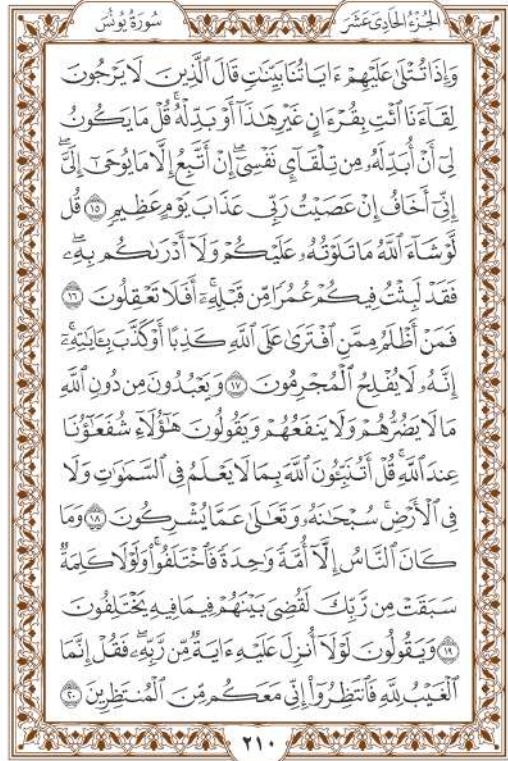 الجُزْءُ الحَادِي عَشَرَ سُورَةُ يُونُسَ
وَإِذَا تُتْلَىٰ عَلَيْهِمْ ءَايَاتُنَا بَيِّنَٰتٍ قَالَ ٱلَّذِينَ لَا يَرْجُونَ
لِقَآءَنَا ٱئْتِ بِقُرْءَانٍ غَيْرِ هَٰذَآ أَوْ بَدِّلْهُ ۚ قُلْ مَا يَكُونُ
لِيٓ أَنْ أُبَدِّلَهُۥ مِن تِلْقَآيِٕ نَفْسِيٓ ۖ إِنْ أَتَّبِعُ إِلَّا مَا يُوحَىٰٓ إِلَيَّ ۖ
إِنِّيٓ أَخَافُ إِنْ عَصَيْتُ رَبِّي عَذَابَ يَوْمٍ عَظِيمٍ ١٥ قُل
لَّوْ شَآءَ ٱللَّهُ مَا تَلَوْتُهُۥ عَلَيْكُمْ وَلَآ أَدْرَىٰكُم بِهِۦ ۖ
فَقَدْ لَبِثْتُ فِيكُمْ عُمُرًا مِّن قَبْلِهِۦٓ ۚ أَفَلَا تَعْقِلُونَ ١٦
فَمَنْ أَظْلَمُ مِمَّنِ ٱفْتَرَىٰ عَلَى ٱللَّهِ كَذِبًا أَوْ كَذَّبَ بِـَٔايَٰتِهِۦٓ ۚ
إِنَّهُۥ لَا يُفْلِحُ ٱلْمُجْرِمُونَ ١٧ وَيَعْبُدُونَ مِن دُونِ ٱللَّهِ
مَا لَا يَضُرُّهُمْ وَلَا يَنفَعُهُمْ وَيَقُولُونَ هَٰٓؤُلَآءِ شُفَعَٰٓؤُنَا
عِندَ ٱللَّهِ ۚ قُلْ أَتُنَبِّـُٔونَ ٱللَّهَ بِمَا لَا يَعْلَمُ فِي ٱلسَّمَٰوَٰتِ وَلَا
فِي ٱلْأَرْضِ ۚ سُبْحَٰنَهُۥ وَتَعَٰلَىٰ عَمَّا يُشْرِكُونَ ١٨ وَمَا
كَانَ ٱلنَّاسُ إِلَّآ أُمَّةً وَٰحِدَةً فَٱخْتَلَفُوا۟ ۚ وَلَوْلَا كَلِمَةٌ
سَبَقَتْ مِن رَّبِّكَ لَقُضِيَ بَيْنَهُمْ فِيمَا فِيهِ يَخْتَلِفُونَ
١٩ وَيَقُولُونَ لَوْلَآ أُنزِلَ عَلَيْهِ ءَايَةٌ مِّن رَّبِّهِۦ ۖ فَقُلْ إِنَّمَا
ٱلْغَيْبُ لِلَّهِ فَٱنتَظِرُوٓا۟ إِنِّي مَعَكُم مِّنَ ٱلْمُنتَظِرِينَ ٢٠
٢١٠